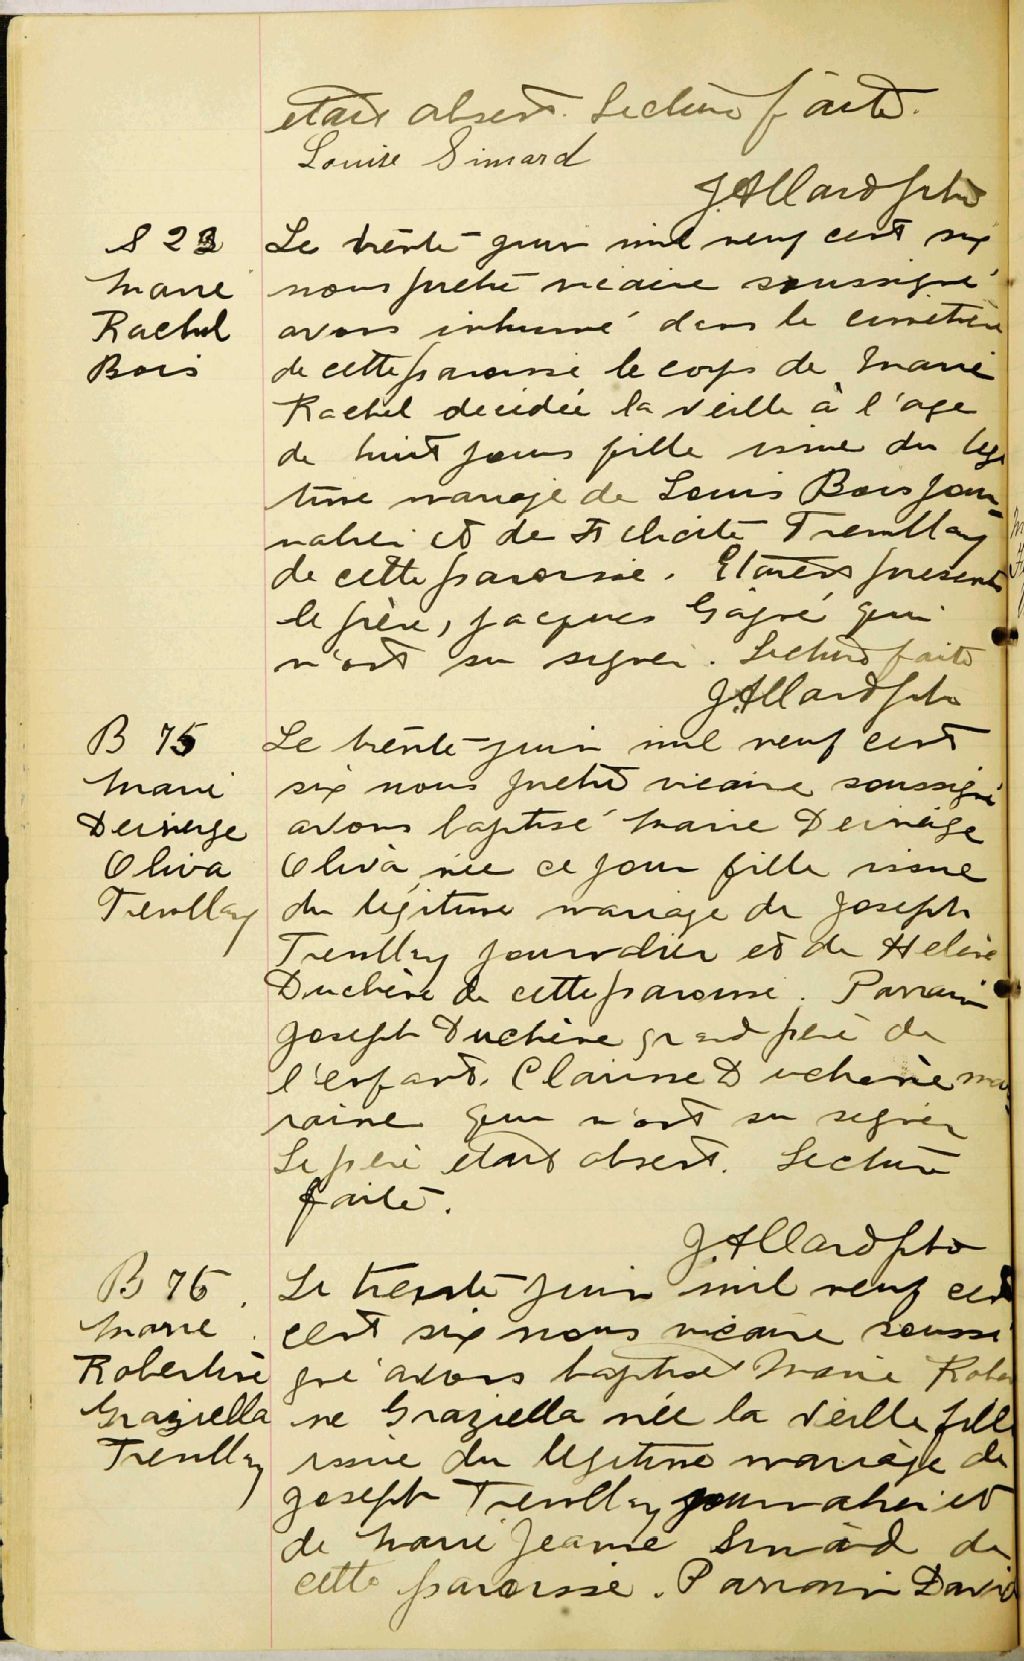 était absent. Lecture faite.
Louise Simard
J. Allard ptre
S 23
Marie
Rachel
Bois
Le trente juin mil neuf cent six
nous prêtre vicaire soussigné
avons inhumé dans le cimetière
de cette paroisse le corps de Marie
Rachel décédée la veille à l'age
de huit jours fille issue du légi
time mariage de Louis Bois jour=
nalier et de Félicité Tremblay
de cette paroisse. Etaient présents
le père, Jacques Gagné qui
n'ont su signer. Lecture faite
J. Allard ptre
B 75
Marie
Deiverge
Oliva
Tremblay
Le trente juin mil neuf cent
six nous prêtre vicaire soussigné
avons baptisé Marie Deiverge
Oliva, née ce jour fille issue
du légitime mariage de Joseph
Tremblay journalier et de Hélène
Duchène de cette paroisse. Parrain
Joseph Duchène grand père de
l'enfant. Clarisse Duchene mar
raine qui n'ont su signer
Le père était absent. Lecture
faite.
J. Allard ptre
B 76.
Marie
Robertine
Graziella
Tremblay
Le trente juin mil neuf cent
cent six nous vicaire soussi
gné avons baptisé Marie Rober
ne Graziella née la veille fille
issue du légitime mariage de
Joseph Tremblay journalier et
de Marie Jeanne Simard de
cette paroisse. Parrain David